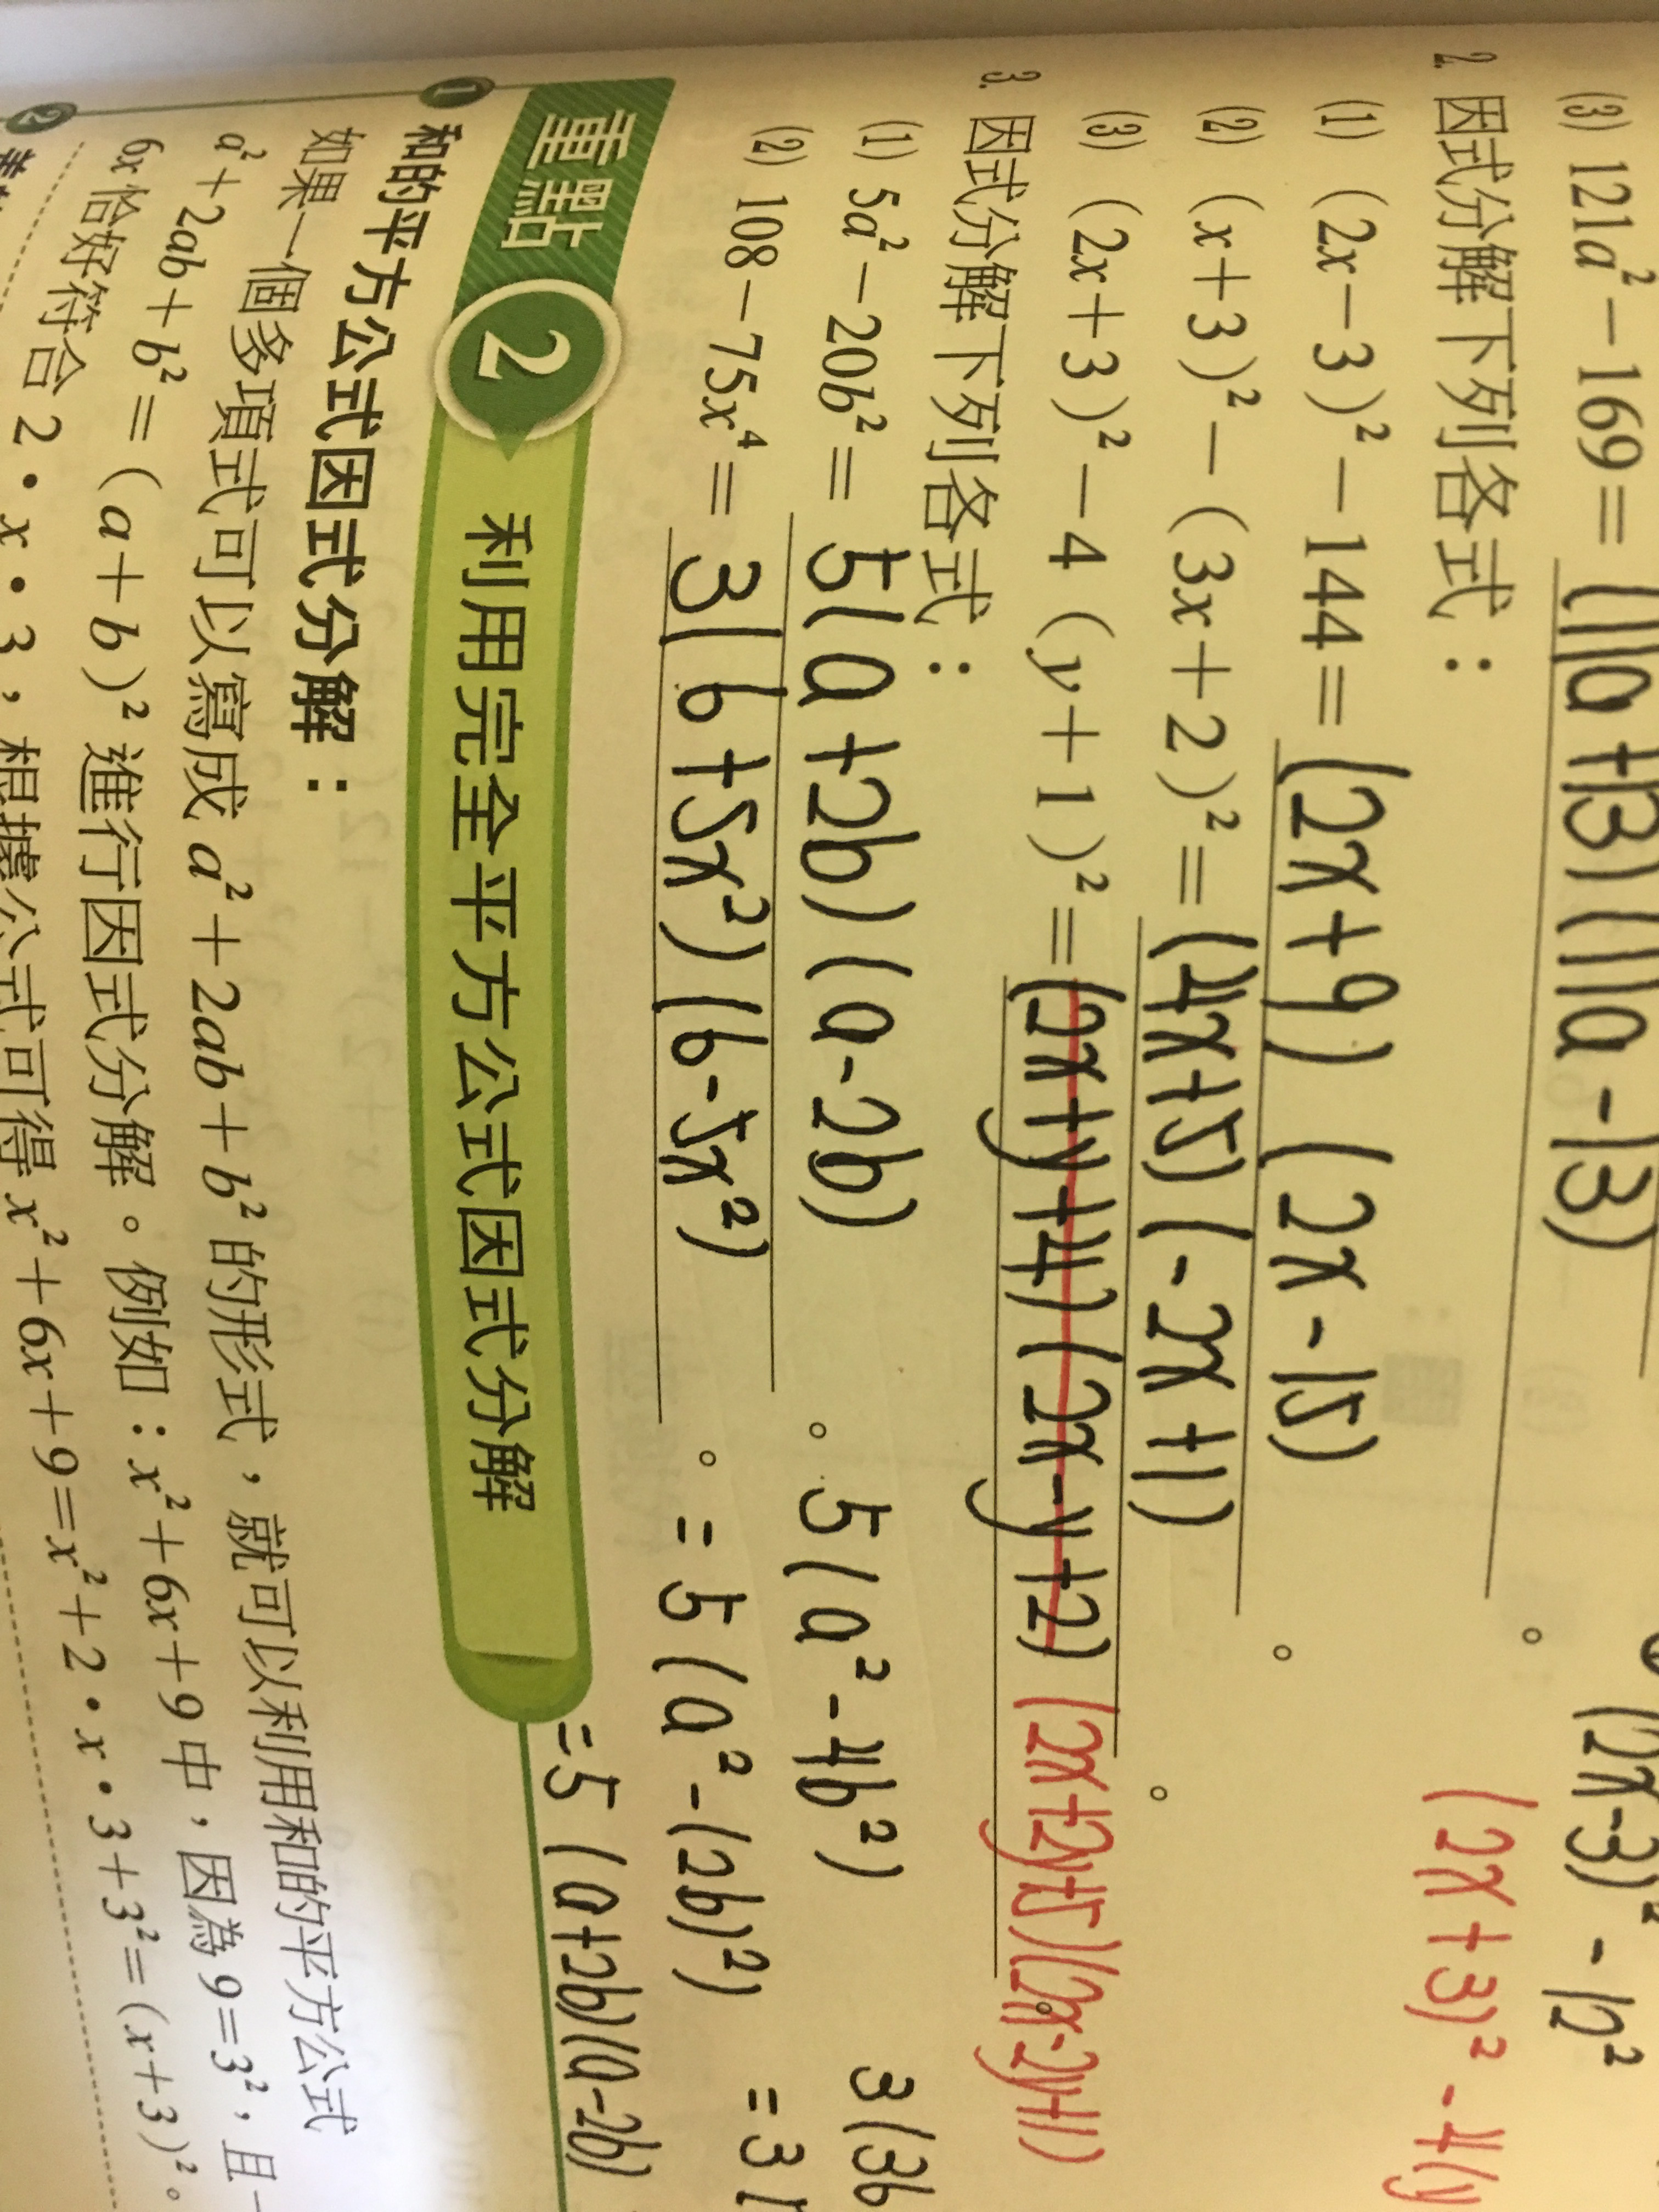 (3) 121a²-169=(11a+13)(11a-13)
(2x-3)²-12²
2. 因式分解下列各式：
(1) (2x-3)²-144=(2x+9)(2x-15)。
(2x+3)²-4(y
(2) (x+3)²-(3x+2)²=(4x+5)(-2x+1)。
(3) (2x+3)²-4(y+1)²=(2x+y+4)(2x-y+2) (2x+2y+5)(2x-2y+1)。
3. 因式分解下列各式：
(1) 5a²-20b²=5(a+2b)(a-2b)。 5(a²-4b²) 3(36
(2) 108-75x⁴=3(6+5x²)(6-5x²)。 =5(a²-(2b)²) =3(
=5(a+2b)(a-2b)
重點 2 利用完全平方公式因式分解
1 和的平方公式因式分解：
如果一個多項式可以寫成 a²+2ab+b² 的形式，就可以利用和的平方公式
a²+2ab+b²=(a+b)² 進行因式分解。例如：x²+6x+9 中，因為 9=3²，且
6x 恰好符合 2·x·3，根據公式可得 x²+6x+9=x²+2·x·3+3²=(x+3)²。
2